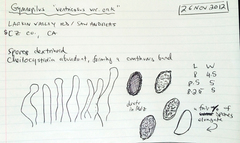 Gymnopilus "ventricosus var. oak"
26 NOV 2012
LARKIN VALLEY RD / SAN ANDREAS
SCZ CO., CA
Spores dextrinoid
Cheilocystidia abundant, forming a continuous band
L W
8 4.5
8.5 5
8.25 5
dextr.
in Melz
a few
spores
elongate